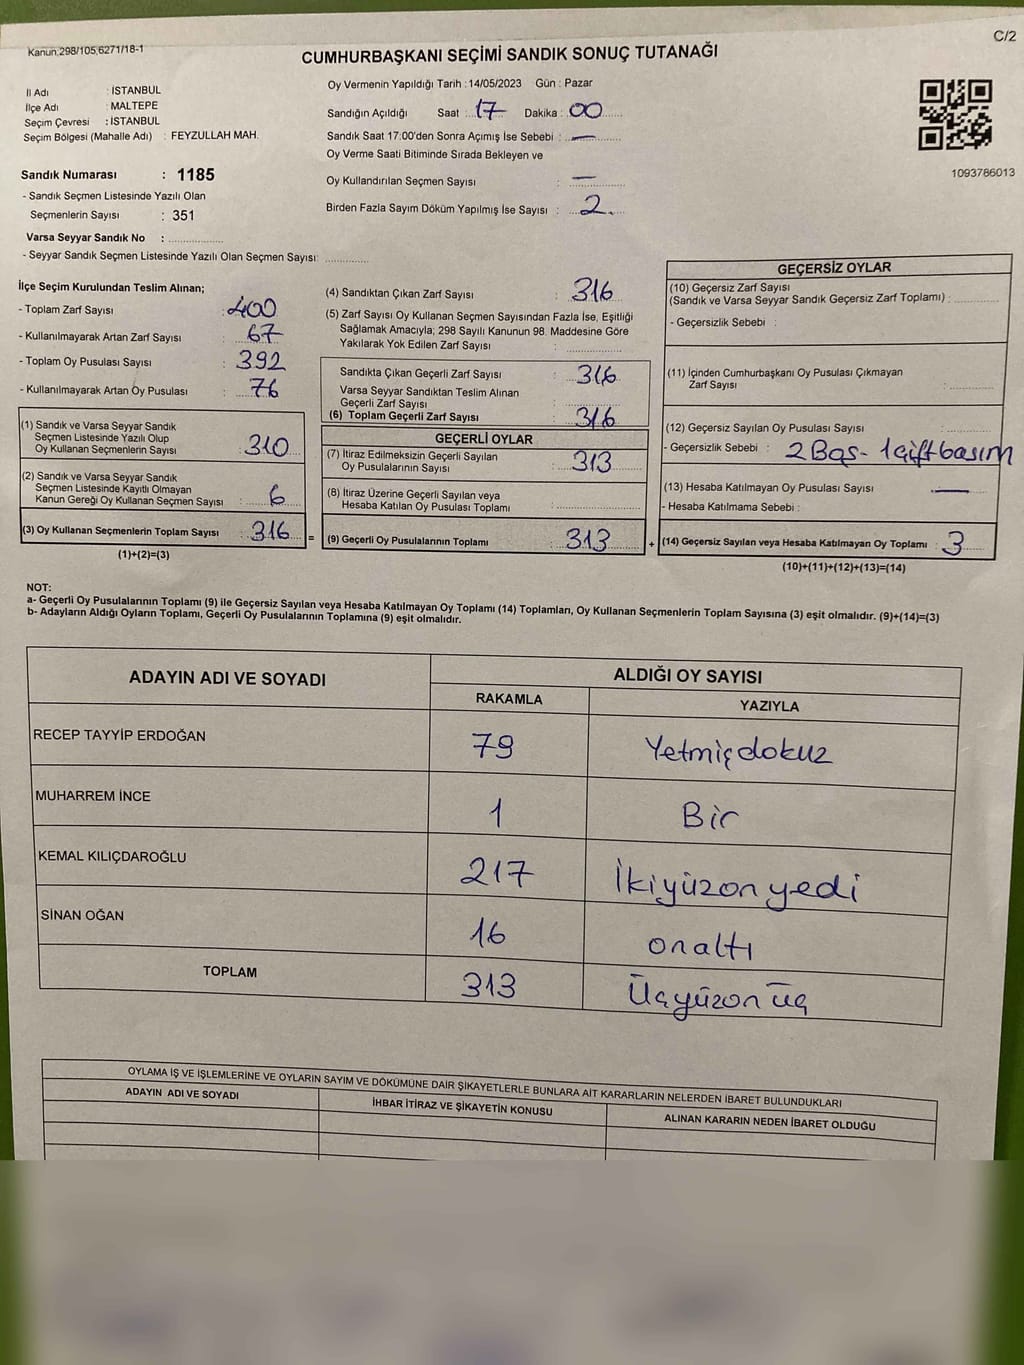 Kanun,298/105,6271/18-1
C/2
CUMHURBAŞKANI SEÇİMİ SANDIK SONUÇ TUTANAĞI
İl Adı : İSTANBUL
İlçe Adı : MALTEPE
Seçim Çevresi : İSTANBUL
Seçim Bölgesi (Mahalle Adı) : FEYZULLAH MAH.
Oy Vermenin Yapıldığı Tarih : 14/05/2023 Gün : Pazar
Sandığın Açıldığı Saat : 17 Dakika : 00
Sandık Saat 17:00'den Sonra Açımış İse Sebebi : —
Oy Verme Saati Bitiminde Sırada Bekleyen ve
Oy Kullandırılan Seçmen Sayısı : —
Birden Fazla Sayım Döküm Yapılmış İse Sayısı : 2.
1093786013
Sandık Numarası : 1185
- Sandık Seçmen Listesinde Yazılı Olan
Seçmenlerin Sayısı : 351
Varsa Seyyar Sandık No :
- Seyyar Sandık Seçmen Listesinde Yazılı Olan Seçmen Sayısı:
İlçe Seçim Kurulundan Teslim Alınan;
- Toplam Zarf Sayısı : 400
- Kullanılmayarak Artan Zarf Sayısı : 67
- Toplam Oy Pusulası Sayısı : 392
- Kullanılmayarak Artan Oy Pusulası : 76
(1) Sandık ve Varsa Seyyar Sandık
Seçmen Listesinde Yazılı Olup
Oy Kullanan Seçmenlerin Sayısı : 310
(2) Sandık ve Varsa Seyyar Sandık
Seçmen Listesinde Kayıtlı Olmayan
Kanun Gereği Oy Kullanan Seçmen Sayısı : 6
(3) Oy Kullanan Seçmenlerin Toplam Sayısı : 316 =
(1)+(2)=(3)
(4) Sandıktan Çıkan Zarf Sayısı : 316
(5) Zarf Sayısı Oy Kullanan Seçmen Sayısından Fazla İse, Eşitliği
Sağlamak Amacıyla; 298 Sayılı Kanunun 98. Maddesine Göre
Yakılarak Yok Edilen Zarf Sayısı :
Sandıkta Çıkan Geçerli Zarf Sayısı : 316
Varsa Seyyar Sandıktan Teslim Alınan
Geçerli Zarf Sayısı :
(6) Toplam Geçerli Zarf Sayısı : 316
GEÇERLİ OYLAR
(7) İtiraz Edilmeksizin Geçerli Sayılan
Oy Pusulalarının Sayısı : 313
(8) İtiraz Üzerine Geçerli Sayılan veya
Hesaba Katılan Oy Pusulası Toplamı :
(9) Geçerli Oy Pusulalarının Toplamı : 313 +
GEÇERSİZ OYLAR
(10) Geçersiz Zarf Sayısı
(Sandık ve Varsa Seyyar Sandık Geçersiz Zarf Toplamı) :
- Geçersizlik Sebebi :
(11) İçinden Cumhurbaşkanı Oy Pusulası Çıkmayan
Zarf Sayısı :
(12) Geçersiz Sayılan Oy Pusulası Sayısı :
- Geçersizlik Sebebi : 2 Boş - 1 çift basım
(13) Hesaba Katılmayan Oy Pusulası Sayısı : —
- Hesaba Katılmama Sebebi :
(14) Geçersiz Sayılan veya Hesaba Katılmayan Oy Toplamı : 3
(10)+(11)+(12)+(13)=(14)
NOT:
a- Geçerli Oy Pusulalarının Toplamı (9) ile Geçersiz Sayılan veya Hesaba Katılmayan Oy Toplamı (14) Toplamları, Oy Kullanan Seçmenlerin Toplam Sayısına (3) eşit olmalıdır. (9)+(14)=(3)
b- Adayların Aldığı Oyların Toplamı, Geçerli Oy Pusulalarının Toplamına (9) eşit olmalıdır.
ADAYIN ADI VE SOYADI
ALDIĞI OY SAYISI
RAKAMLA YAZIYLA
RECEP TAYYİP ERDOĞAN 79 Yetmişdokuz
MUHARREM İNCE 1 Bir
KEMAL KILIÇDAROĞLU 217 İkiyüzon yedi
SİNAN OĞAN 16 onaltı
TOPLAM 313 Üçyüzon üç
OYLAMA İŞ VE İŞLEMLERİNE VE OYLARIN SAYIM VE DÖKÜMÜNE DAİR ŞİKAYETLERLE BUNLARA AİT KARARLARIN NELERDEN İBARET BULUNDUKLARI
ADAYIN ADI VE SOYADI
İHBAR İTİRAZ VE ŞİKAYETİN KONUSU
ALINAN KARARIN NEDEN İBARET OLDUĞU